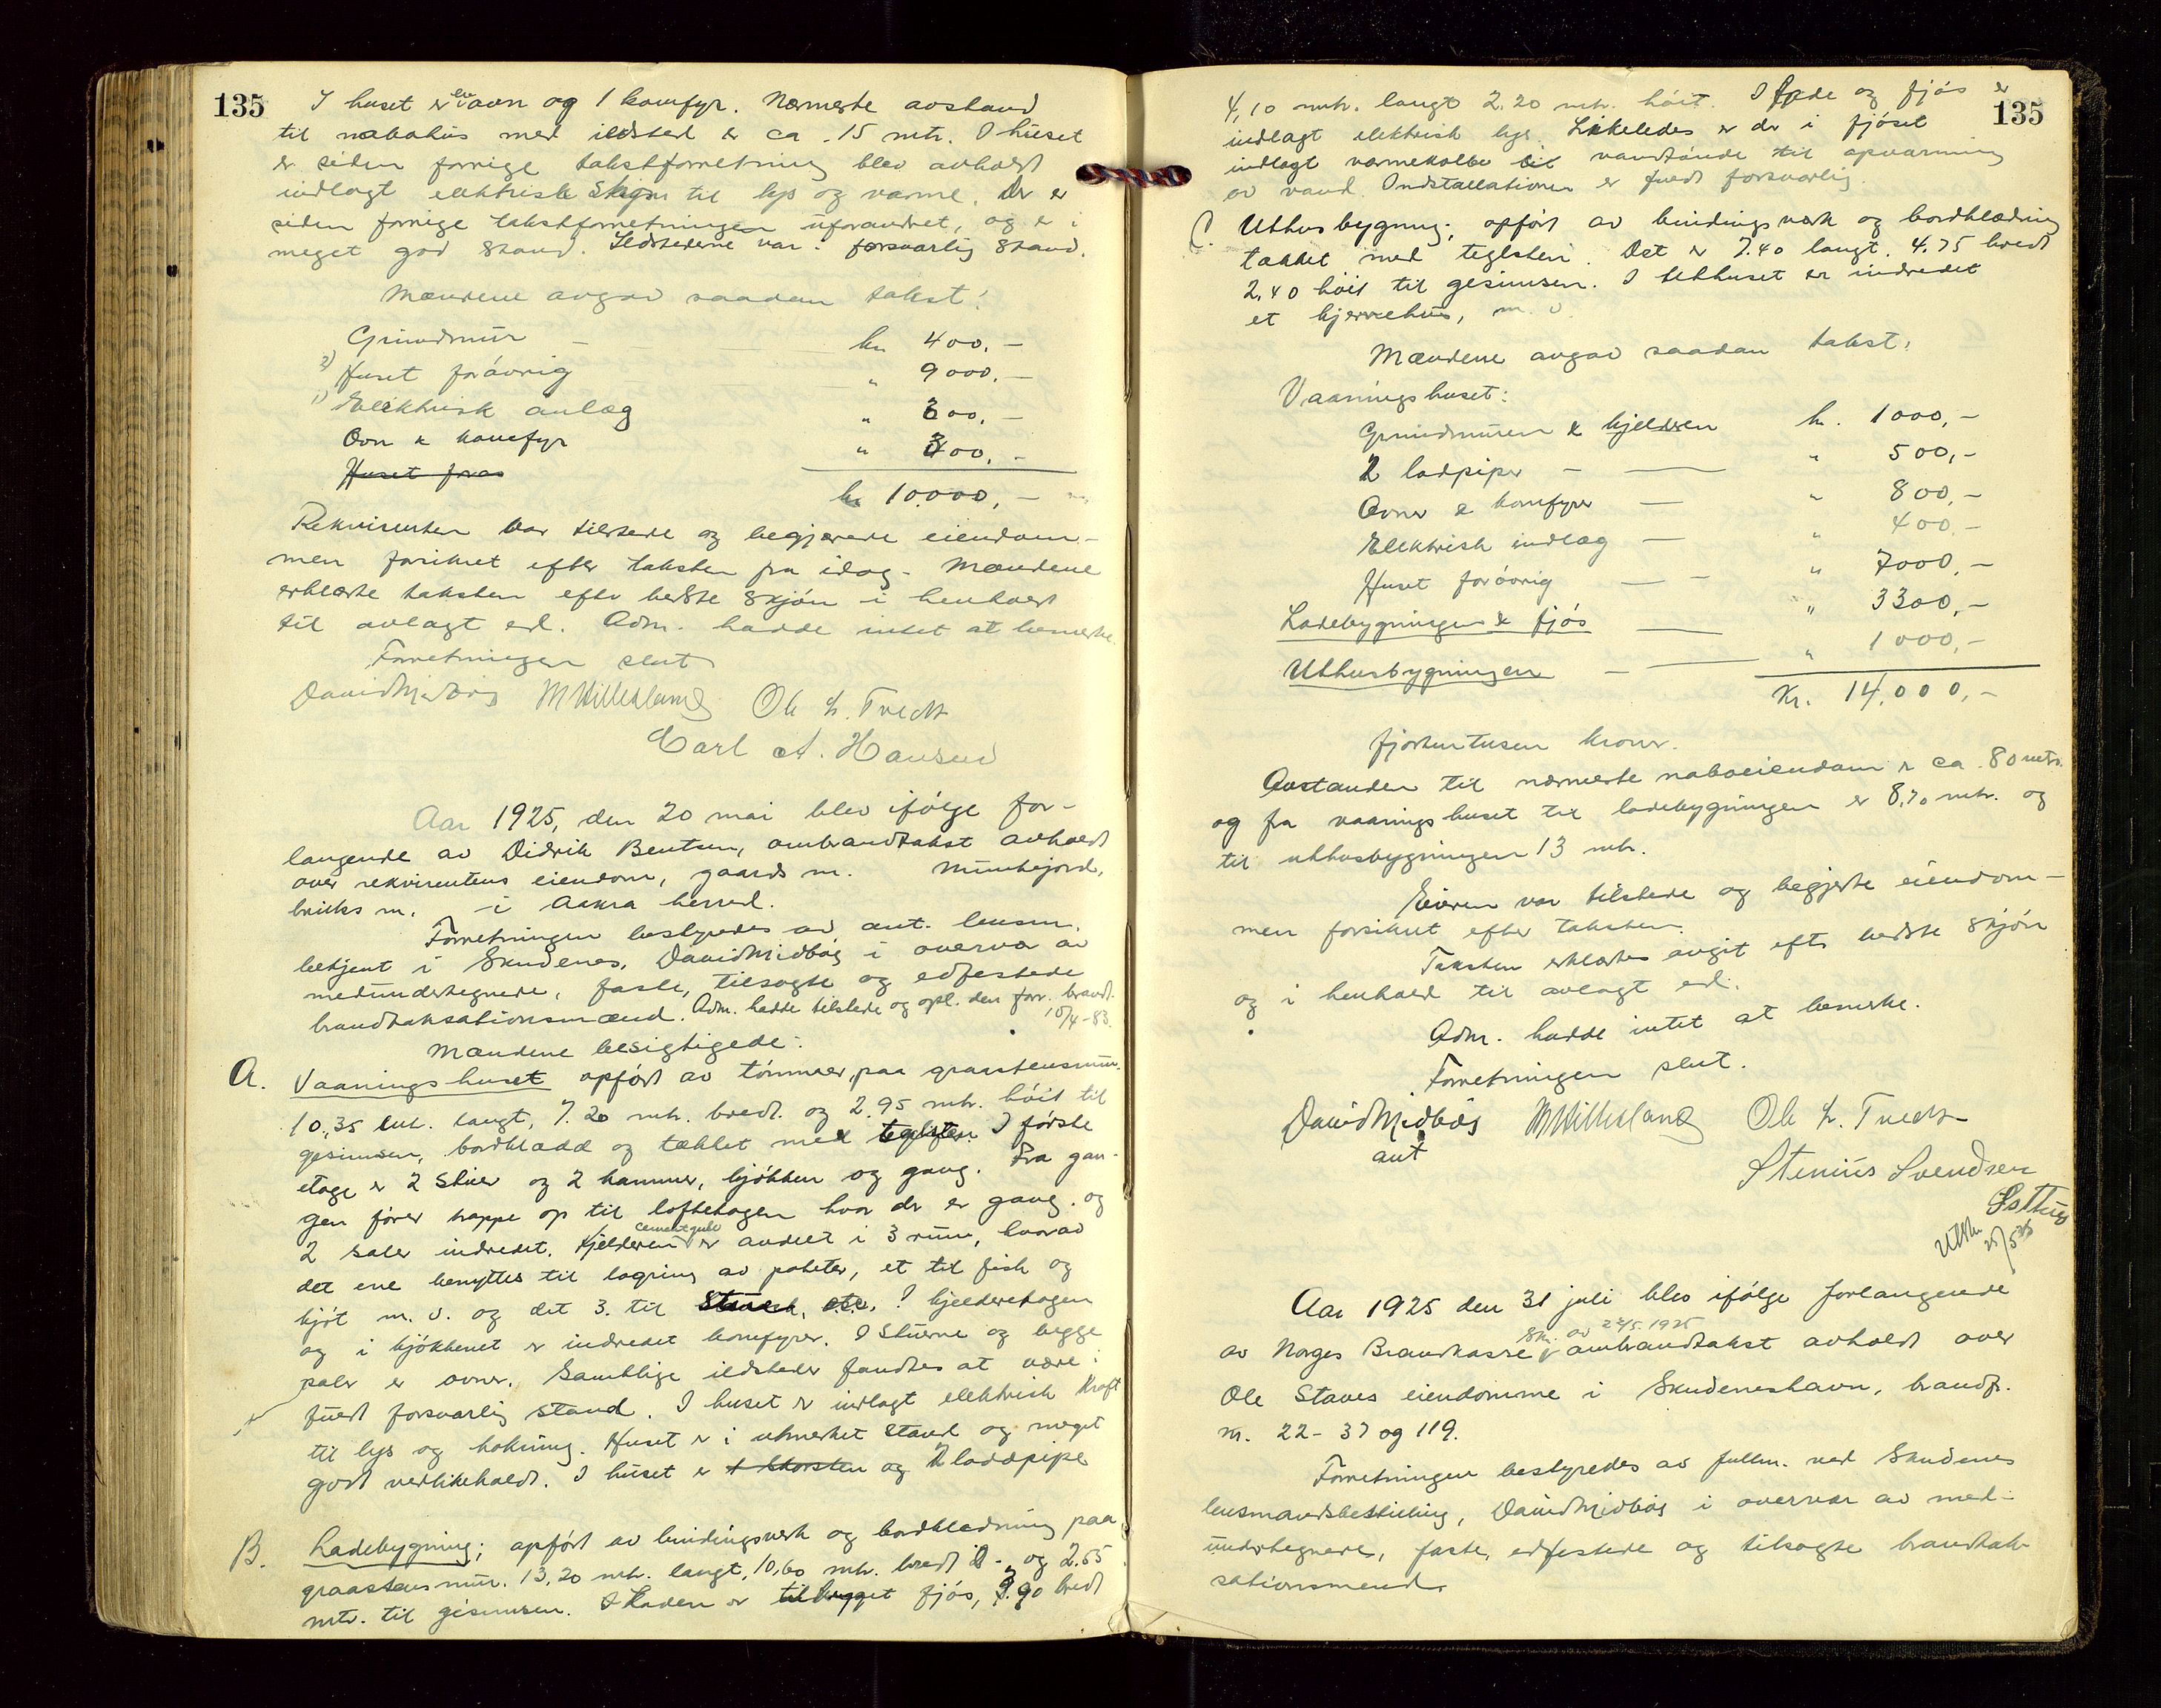 135
I huset er en ovn og 1 komfyr. Nærmeste avstand
til nabohus med ildsted er ca. 15 mtr. I huset
er siden forrige takstforretning blev avholdt
indlagt elektrisk til lys og varme. Der er
siden forrige takstforretningen uforandret, og er i
meget god stand. Ildstederne var i forsvarlig stand.
Mændene avgav saadan takst:
Grundmur – kr 400,–
2) Huset forøvrig " 9000,–
1) Elektrisk anlæg " 300,–
Ovn & komfyr " 300,–
Huset foraa
kr 10.000,–
Rekvirenten var tilstede og begjærede eiendom-
men forsikret efter taksten fra idag. Mændene
erklærte taksten efter bedste skjøn i henhold
til avlagt ed. Adm. hadde intet at bemerke.
Forretningen slut
David Midbøg M Hillesland Ole L. Tvedt
Carl A. Hansen
Aar 1925, den 20 mai blev ifølge for-
langende av Didrik Bentsen, ombrandtakst avholdt
over rekvirentens eiendom, gaards nr. Munkejord,
bruks nr. – i Aakra herred.
Forretningen bestyredes av aut. lensm.
betjent i Skudenes, David Midbøg i overvær av
medundertegnede, faste, tilsagte og edfestede
brandtaksationsmænd. Adm. hadde tilstede og opl. den forr. brandt.
10/4-83.
Mændene besigtigede:
A. Vaaningshuset opført av tømmer, paa graastensmur.
10,35 mtr. langt, 7.20 mtr. bredt og 2.95 mtr. høit til
gesimsen, bordklædd og tækket med teglsten. I første
etage er 2 stuer og 2 kammer, kjøkken og gang. Fra gan-
gen fører trappe op til loftetagen hvor der er gang og
2 saler indredet. Kjelderen cementgulv er avdelt i 3 rum, hvorav
det ene benyttes til lagring av poteter, et til fisk og
kjøt m. v. og det 3. til etc. I kjelderetagen
og i kjøkkenet er indredet komfyrer. I stuerne og begge
saler er ovner. Samtlige ildsteder fandtes at være i
fuldt forsvarlig stand. I huset er indlagt elektrisk kraft
til lys og kokning. Huset er i utmerket stand og meget
godt vedlikeholdt. I huset er 1 skorsten og 2 loddpipe
B. Ladebygning; opført av bindingsverk og bordklædning paa
graastensmur. 13,20 mtr. langt, 10,60 mtr. bredt og 2.65
mtr. til gesimsen. I laden er tilbygget fjøs, 9.90 bredt
135
4,10 mtr. langt 2.20 mtr. høit. I lade og fjøs er
indlagt elektrisk lys. Likeledes er der i fjøset
indlagt varmekolbe til vandtønde til opvarming
av vand. Indstallationen er fuldt forsvarlig.
C. Uthusbygning; opført av bindingsverk og bordklædning
tækket med teglsten. Det er 7.40 langt. 4.75 bredt
2.40 høit til gesimsen. I uthuset er indredet
et kjerrehus, m. v.
Mændene avgav saadan takst:
Vaaningshuset:
Grundmuren & kjelderen kr. 1000,–
2 lodpiper – " 500,–
Ovner & komfyrer – " 800,–
Elektrisk indlæg – " 400,–
Huset forøvrig – – " 7000,–
Ladebygningen & fjøs – " 3300,–
Uthusbygningen – " 1000,–
Kr. 14.000,–
fjortentusen kroner.
Avstanden til nærmeste naboeiendom er ca. 80 mtr.
og fra vaaningshuset til ladebygningen er 8,70 mtr. og
til uthusbygningen 13 mtr.
Eieren var tilstede og begjærte eiendom-
men forsikret efter taksten.
Taksten erklærtes avgit efter bedste skjøn
og i henhold til avlagt ed.
Adm. hadde intet at bemerke.
Forretningen slut.
David Midbøg M Hillesland Ole L. Tvedt
aut
Stenius Svendsen
Utskr. 25/5 25
Aar 1925 den 31 juli blev ifølge forlangende
av Norges Brandkasse skr. av 22/5. 1925 ombrandtakst avholdt over
Ole Staves eiendomme i Skudeneshavn, brandfs.
nr. 22 - 37 og 119.
Forretningen bestyredes av fullm. ved Skudenes
lensmandsbestilling, David Midbøg i overvær av med-
undertegnede, faste, edfestede og tilsagte brandtak-
sationsmænd.